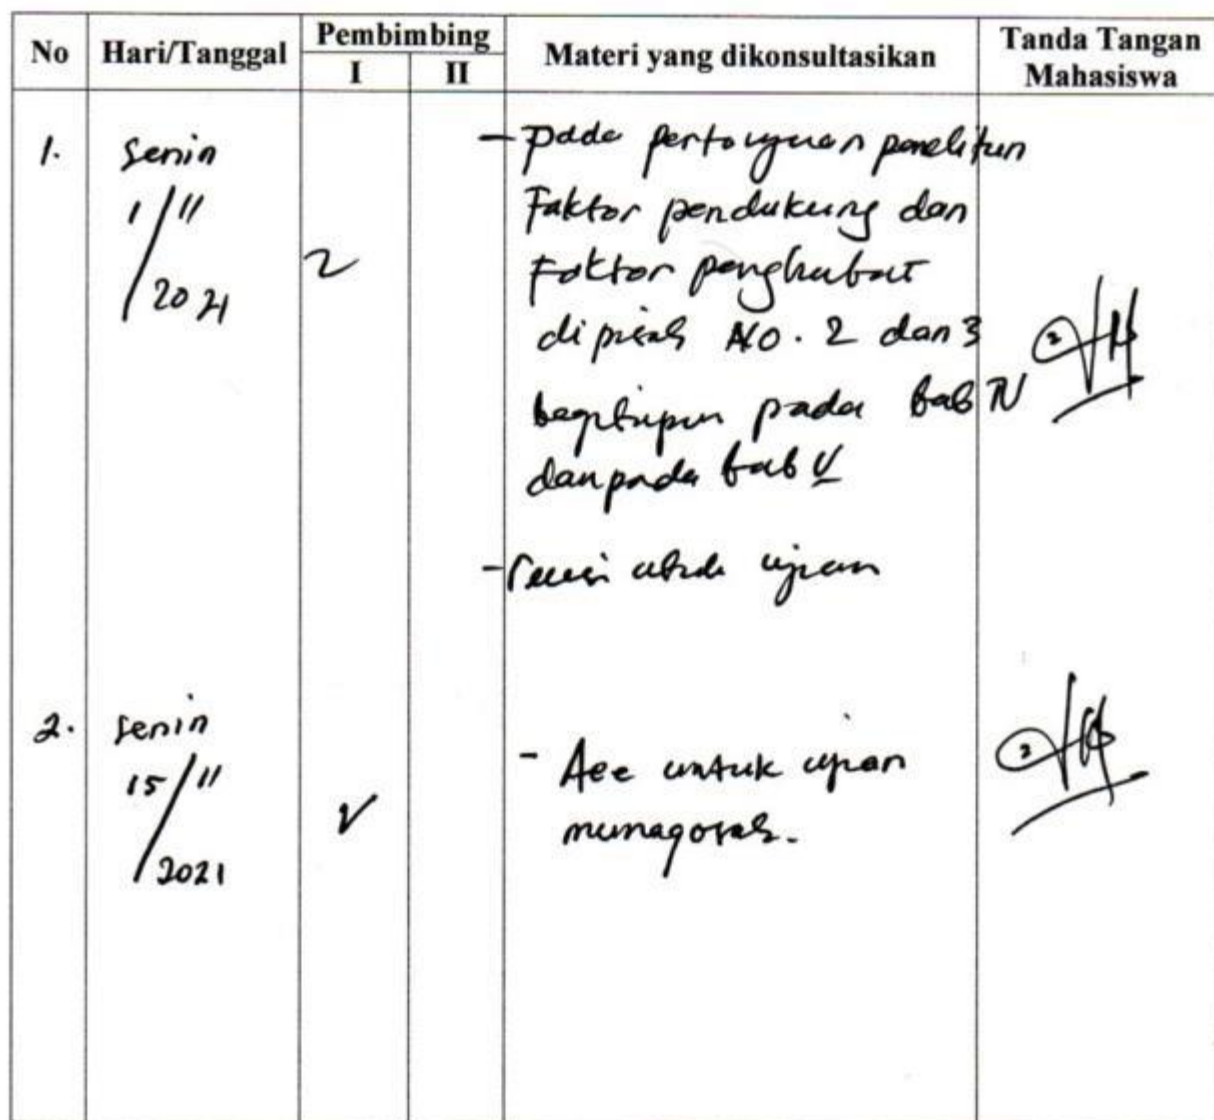 No Hari/Tanggal Pembimbing Materi yang dikonsultasikan Tanda Tangan Mahasiswa
I II
1. Senin - pada pertanyaan penelitian
1/11 Faktor pendukung dan
2021 Faktor penghambat
dipisah No. 2 dan 3
begitupun pada bab IV
dan pada bab V
- revisi untuk ujian
2. Senin
15/11 - Acc untuk ujian
2021 munaqosah.